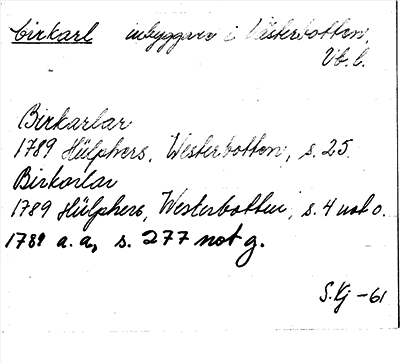 birkarl inbyggare i Västerbotten.
Vb. l.
Birkarlar
1789 Hülphers, Westerbotten, s. 25.
Birkorlar
1789 Hülphers, Westerbotten, s. 4 not o.
1789 a. a, s. 277 not g.
S. Kj -61